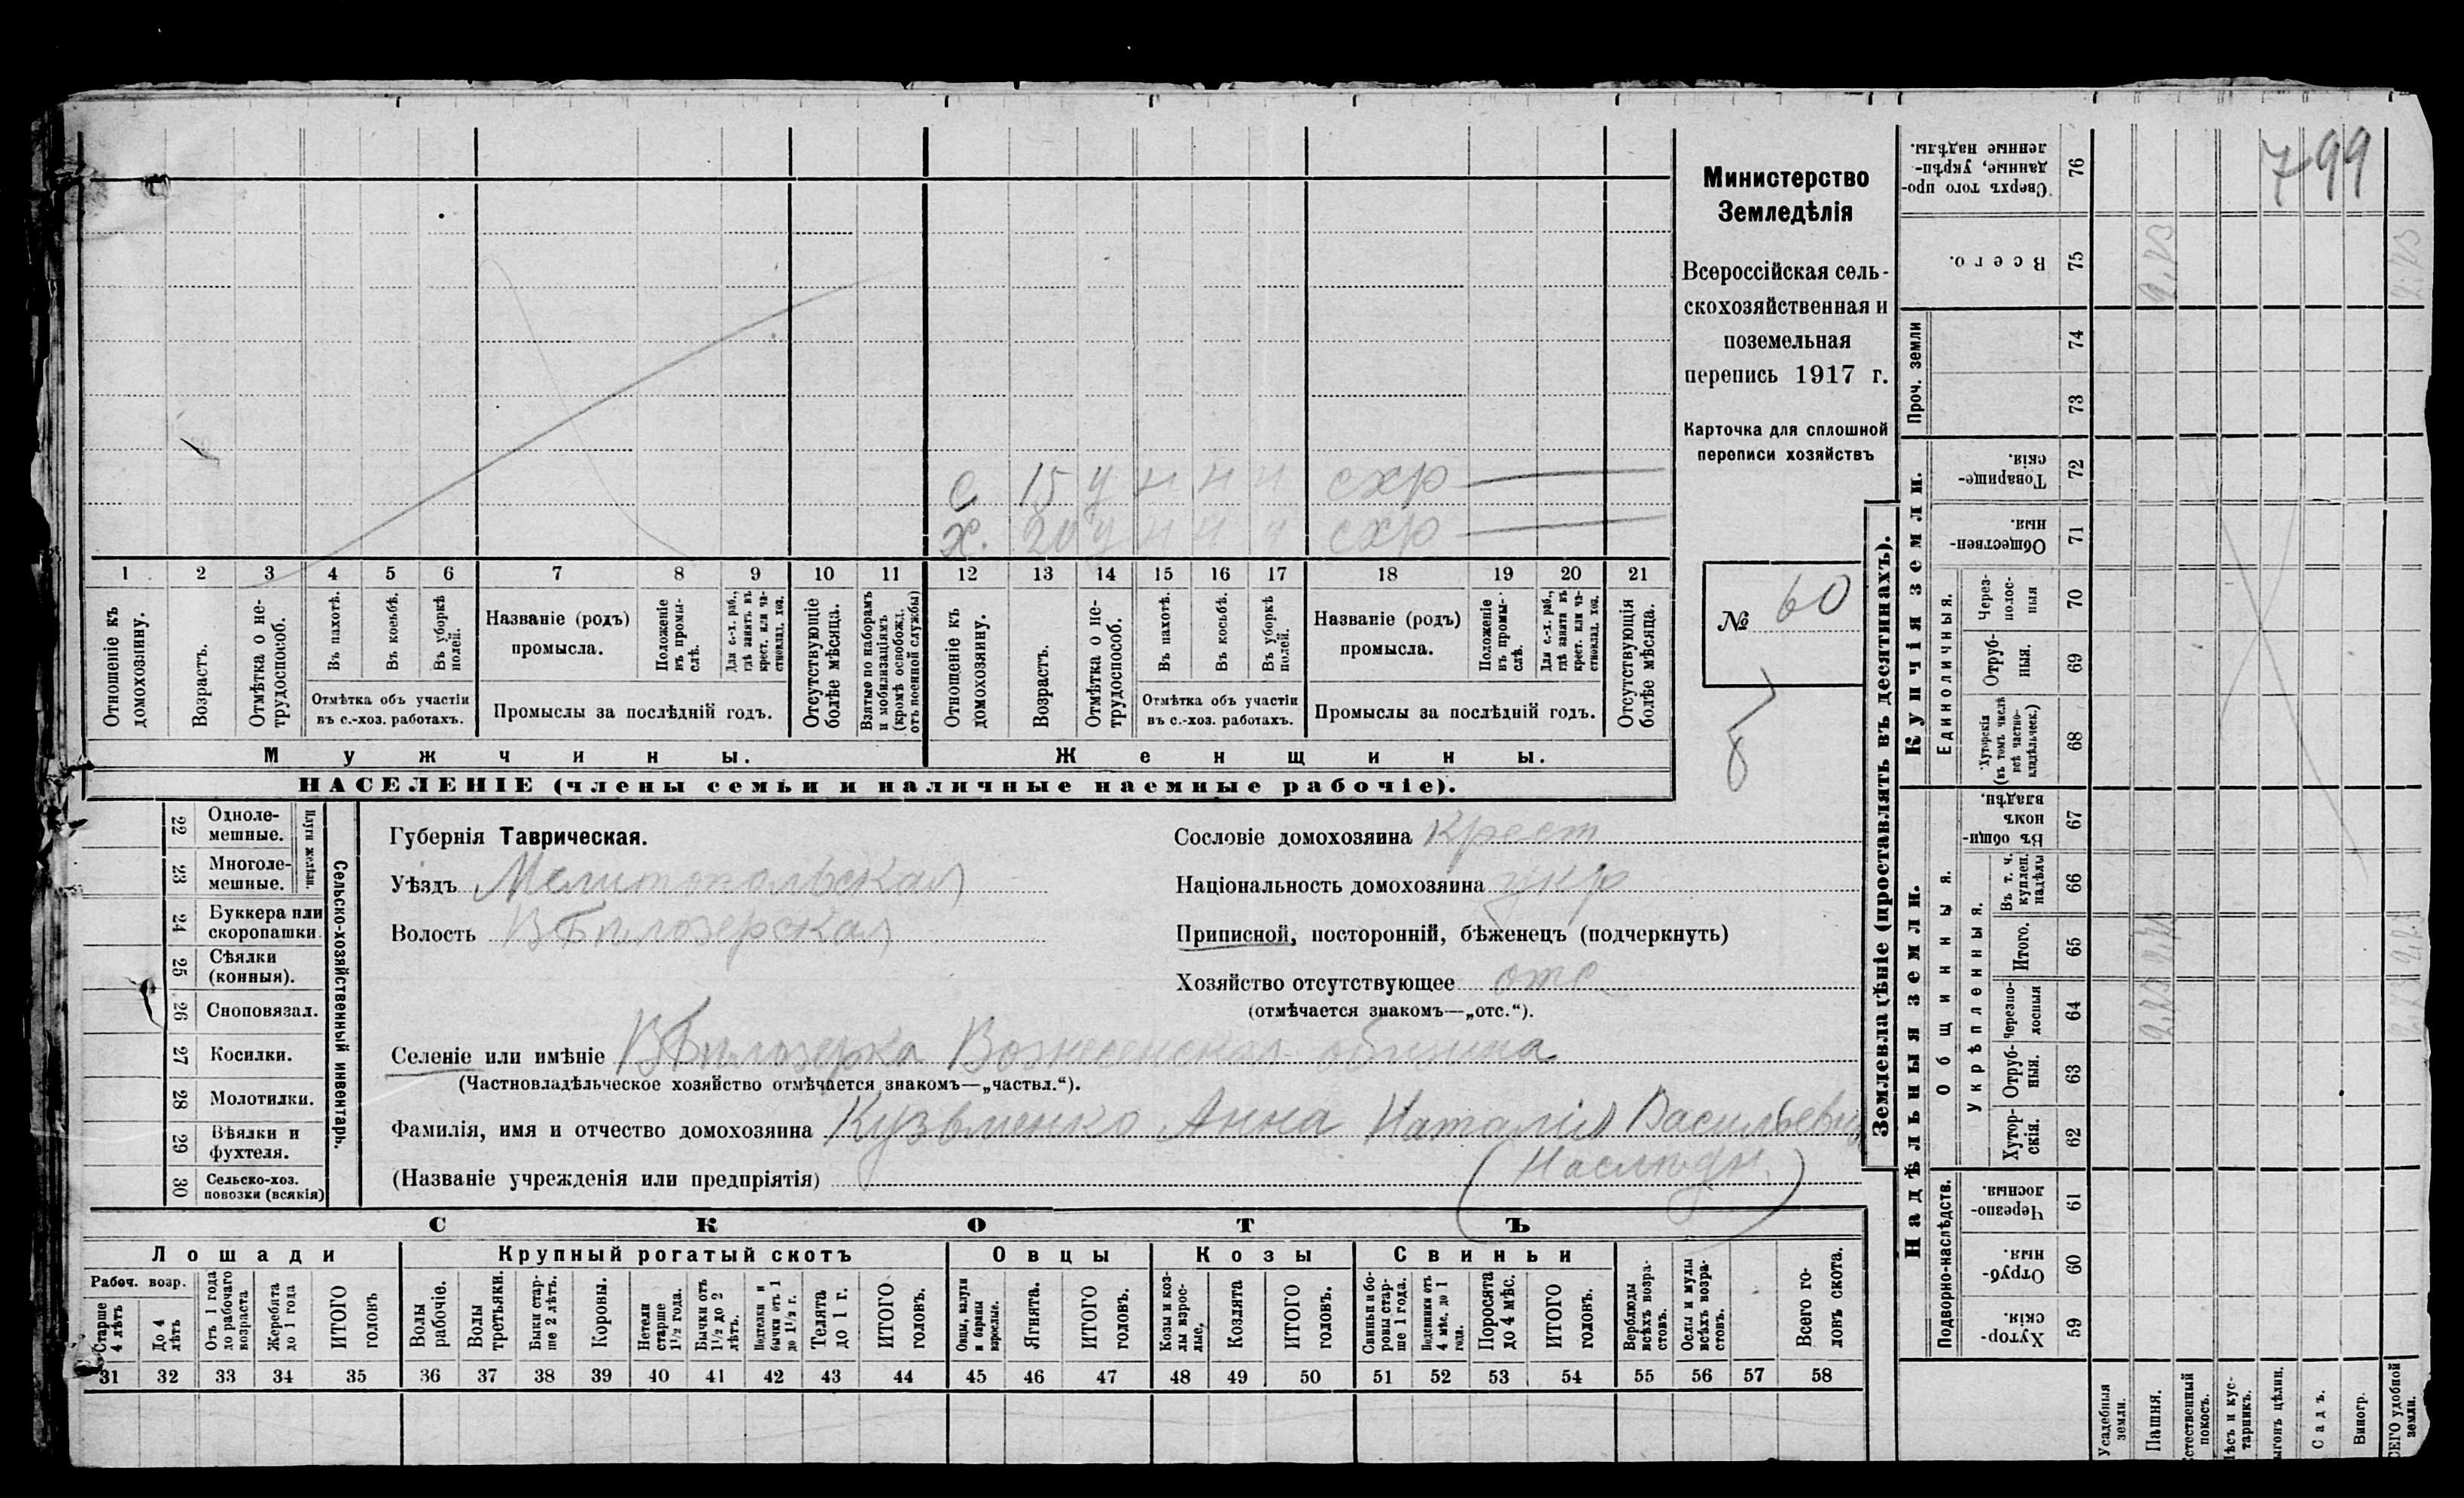 799
Министерство
Земледѣлія
Всероссійская сель-
скохозяйственная и
поземельная
перепись 1917 г.
Карточка для сплошной
переписи хозяйствъ
№ 60
С 15 у н н н схр
Х. 20 у н н н схр
1 2 3 4 5 6 7 8 9 10 11 12 13 14 15 16 17 18 19 20 21
Отношеніе къ домохозяину.
Возрастъ.
Отмѣтка о не-
трудоспособ.
Въ пахотѣ.
Въ косьбѣ.
Въ уборкѣ
полей.
Отмѣтка объ участіи
въ с.-хоз. работахъ.
Названіе (родъ)
промысла.
Положеніе
въ промы-
слѣ.
Для с.-х. раб.,
гдѣ занятъ въ
крест. или ча-
стновлад. хоз.
Промыслы за послѣдній годъ.
Отсутствующіе
болѣе мѣсяца.
Взятые по наборамъ
и мобилизаціямъ
(кромѣ освобожд.
отъ военной службы)
Отношеніе къ
домохозяину.
Возрастъ.
Отмѣтка о не-
трудоспособ.
Въ пахотѣ.
Въ косьбѣ.
Въ уборкѣ
полей.
Отмѣтка объ участіи
въ с.-хоз. работахъ.
Названіе (родъ)
промысла.
Положеніе
въ промы-
слѣ.
Для с.-х. раб.,
гдѣ заняты въ
крест. или ча-
стновлад. хоз.
Промыслы за послѣдній годъ.
Отсутствующія
болѣе мѣсяца.
Мужчины.
Женщины.
НАСЕЛЕНІЕ (члены семьи и наличные наемные рабочіе).
22 Одноле-
мешные.
23 Многоле-
мешные.
Плуги желѣзн.
24 Буккера или
скоропашки.
25 Сѣялки
(конныя).
26 Сноповязал.
27 Косилки.
28 Молотилки.
29 Вѣялки и
фухтеля.
30 Сельско-хоз.
повозки (всякія)
Сельско-хозяйственный инвентарь.
Губернія Таврическая.
Уѣздъ Мелитопольская
Волость В Бѣлозерская
Сословіе домохозяина Крест
Національность домохозяина укр
Приписной, посторонній, бѣженецъ (подчеркнуть)
Хозяйство отсутствующее отс
(отмѣчается знакомъ—„отс.“).
Селеніе или имѣніе В Бѣлозерка община
(Частновладѣльческое хозяйство отмѣчается знакомъ—„частвл.“).
Фамилія, имя и отчество домохозяина Кузьменко Анна Наталія
(Названіе учрежденія или предпріятія)
СКОТЪ
Лошади
Крупный рогатый скотъ
Овцы
Козы
Свиньи
Рабоч. возр.
Старше
4 лѣтъ
До 4
лѣтъ
Отъ 1 года
до рабочаго
возраста
Жеребята
до 1 года
ИТОГО
головъ
Волы
рабочіе.
Волы
третьяки.
Быки стар-
ше 2 лѣтъ.
Коровы.
Нетели
старше
1½ года.
Бычки отъ
1½ до 2
лѣтъ.
Подтелки и
бычки отъ 1
до 1½ г.
Телята
до 1 г.
ИТОГО
головъ.
Овцы, валухи
и бараны
взрослые.
Ягнята.
ИТОГО
головъ.
Козы и коз-
лы взрос-
лые.
Козлята
ИТОГО
головъ.
Свиньи и бо-
ровы стар-
ше 1 года.
Подсвинки отъ
4 мѣс. до 1
года.
Поросята
до 4 мѣс.
ИТОГО
головъ.
Верблюды
всѣхъ возра-
стовъ.
Ослы и мулы
всѣхъ возра-
стовъ.
Всего го-
ловъ скота.
31 32 33 34 35 36 37 38 39 40 41 42 43 44 45 46 47 48 49 50 51 52 53 54 55 56 57 58
Землевладѣніе (проставлять въ десятинахъ).
Купчія земли.
Надѣльныя земли.
Проч. земли
Единоличныя.
Общинныя.
Укрѣпленныя.
Подворно-наслѣдств.
Сверхъ того про-
данные, укрѣп-
ленные надѣлы. 76
Всего. 75
74
73
Товарище-
скія. 72
Обществен-
ныя. 71
Через-
полос-
ныя 70
Отруб-
ныя. 69
Хуторскія
(въ томъ числѣ
всѣ частно-
владѣльческ.) 68
Въ общи-
номъ
владѣн. 67
Въ т. ч.
куплен.
надѣлы 66
Итого. 65
Черезпо-
лосныя 64
Отруб-
ныя. 63
Хутор-
скія. 62
Черезпо-
лосныя. 61
Отруб-
ныя. 60
Хутор-
скія. 59
Усадебныя
земли.
Пашня.
Естественный
покосъ.
Лѣсъ и кус-
тарникъ.
Выгонъ цѣлин.
Садъ.
Виногр.
ВСЕГО удобной
земли.